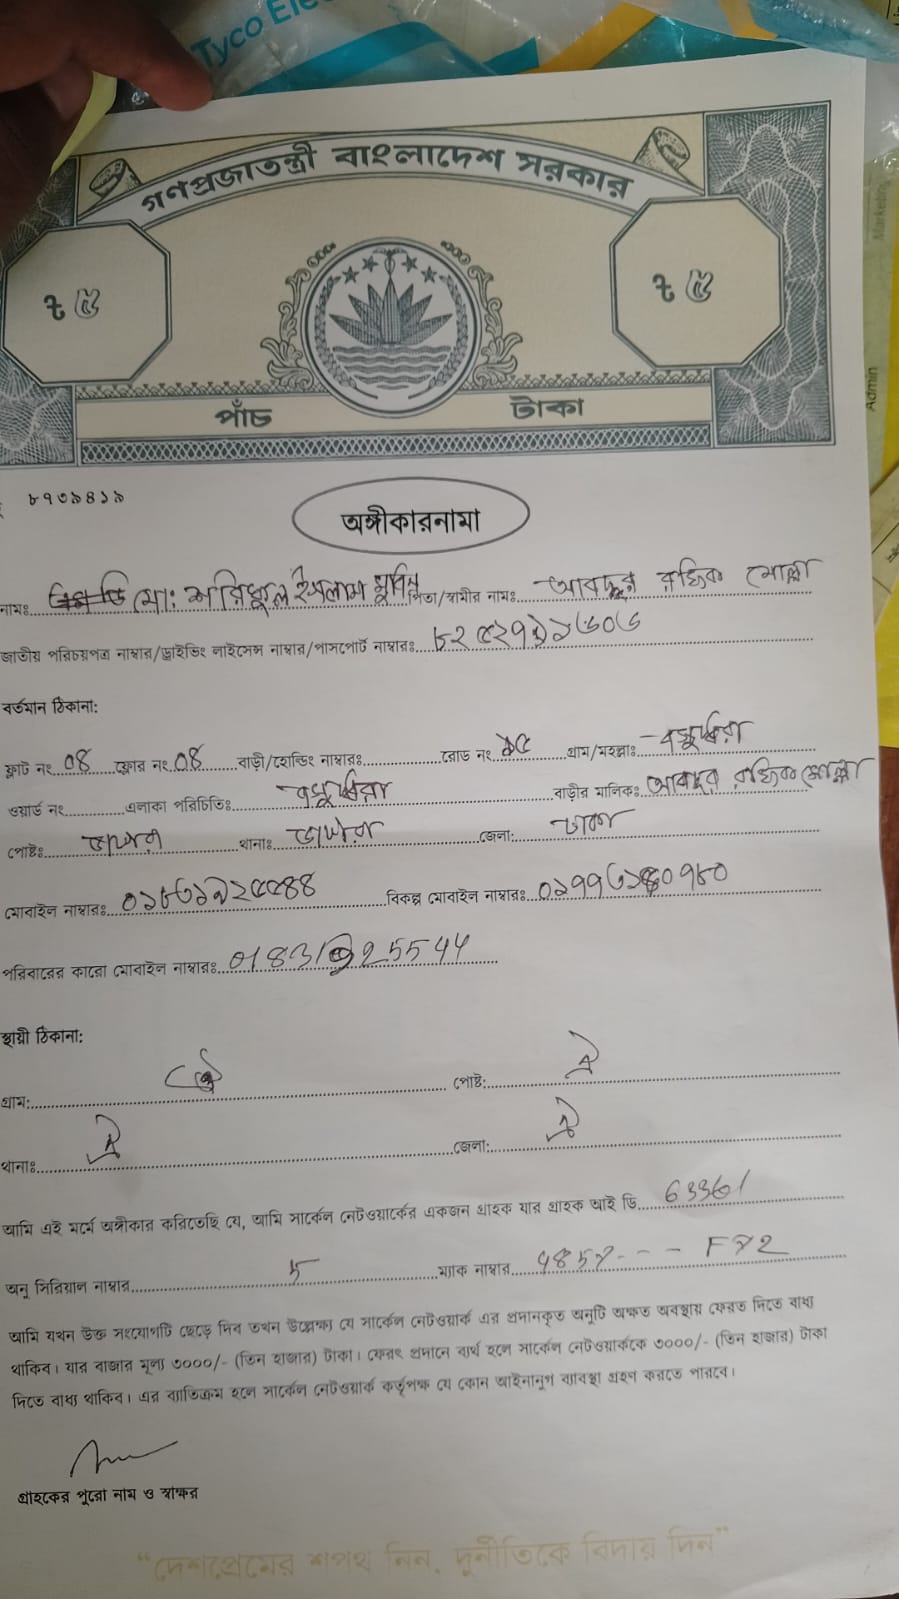 Tyco Ele
গণপ্রজাতন্ত্রী বাংলাদেশ সরকার
৳ ৫ ৳ ৫
পাঁচ টাকা
Marketing
Admin
৮৭৩৯৪১৯
অঙ্গীকারনামা
নামঃ মো: শরিফুল ইসলাম মুবিন পিতা/স্বামীর নামঃ আবদুর রাজ্জিক মোল্লা
জাতীয় পরিচয়পত্র নাম্বার/ড্রাইভিং লাইসেন্স নাম্বার/পাসপোর্ট নাম্বারঃ
বর্তমান ঠিকানা:
ফ্লাট নং 08 ফ্লোর নং 08 বাড়ী/হোল্ডিং নাম্বারঃ রোড নং ১৫ গ্রাম/মহল্লাঃ বসুন্ধরা
ওয়ার্ড নং এলাকা পরিচিতিঃ বসুন্ধরা বাড়ীর মালিকঃ আবদুর রাজ্জিক মোল্লা
পোষ্টঃ ভাটারা থানাঃ ভাটারা জেলা: ঢাকা
মোবাইল নাম্বারঃ বিকল্প মোবাইল নাম্বারঃ
পরিবারের কারো মোবাইল নাম্বারঃ
স্থায়ী ঠিকানা:
গ্রাম: ঐ পোষ্ট: ঐ
থানাঃ ঐ জেলা: ঐ
আমি এই মর্মে অঙ্গীকার করিতেছি যে, আমি সার্কেল নেটওয়ার্কের একজন গ্রাহক যার গ্রাহক আই ডি 63361
অনু সিরিয়াল নাম্বার 5 ম্যাক নাম্বার
আমি যখন উক্ত সংযোগটি ছেড়ে দিব তখন উল্লেক্ষ্য যে সার্কেল নেটওয়ার্ক এর প্রদানকৃত অনুটি অক্ষত অবস্থায় ফেরত দিতে বাধ্য
থাকিব। যার বাজার মূল্য ৩০০০/- (তিন হাজার) টাকা। ফেরৎ প্রদানে ব্যর্থ হলে সার্কেল নেটওয়ার্ককে ৩০০০/- (তিন হাজার) টাকা
দিতে বাধ্য থাকিব। এর ব্যাতিক্রম হলে সার্কেল নেটওয়ার্ক কর্তৃপক্ষ যে কোন আইনানুগ ব্যাবস্থা গ্রহণ করতে পারবে।
গ্রাহকের পুরো নাম ও স্বাক্ষর
“দেশপ্রেমের শপথ নিন, দুর্নীতিকে বিদায় দিন”